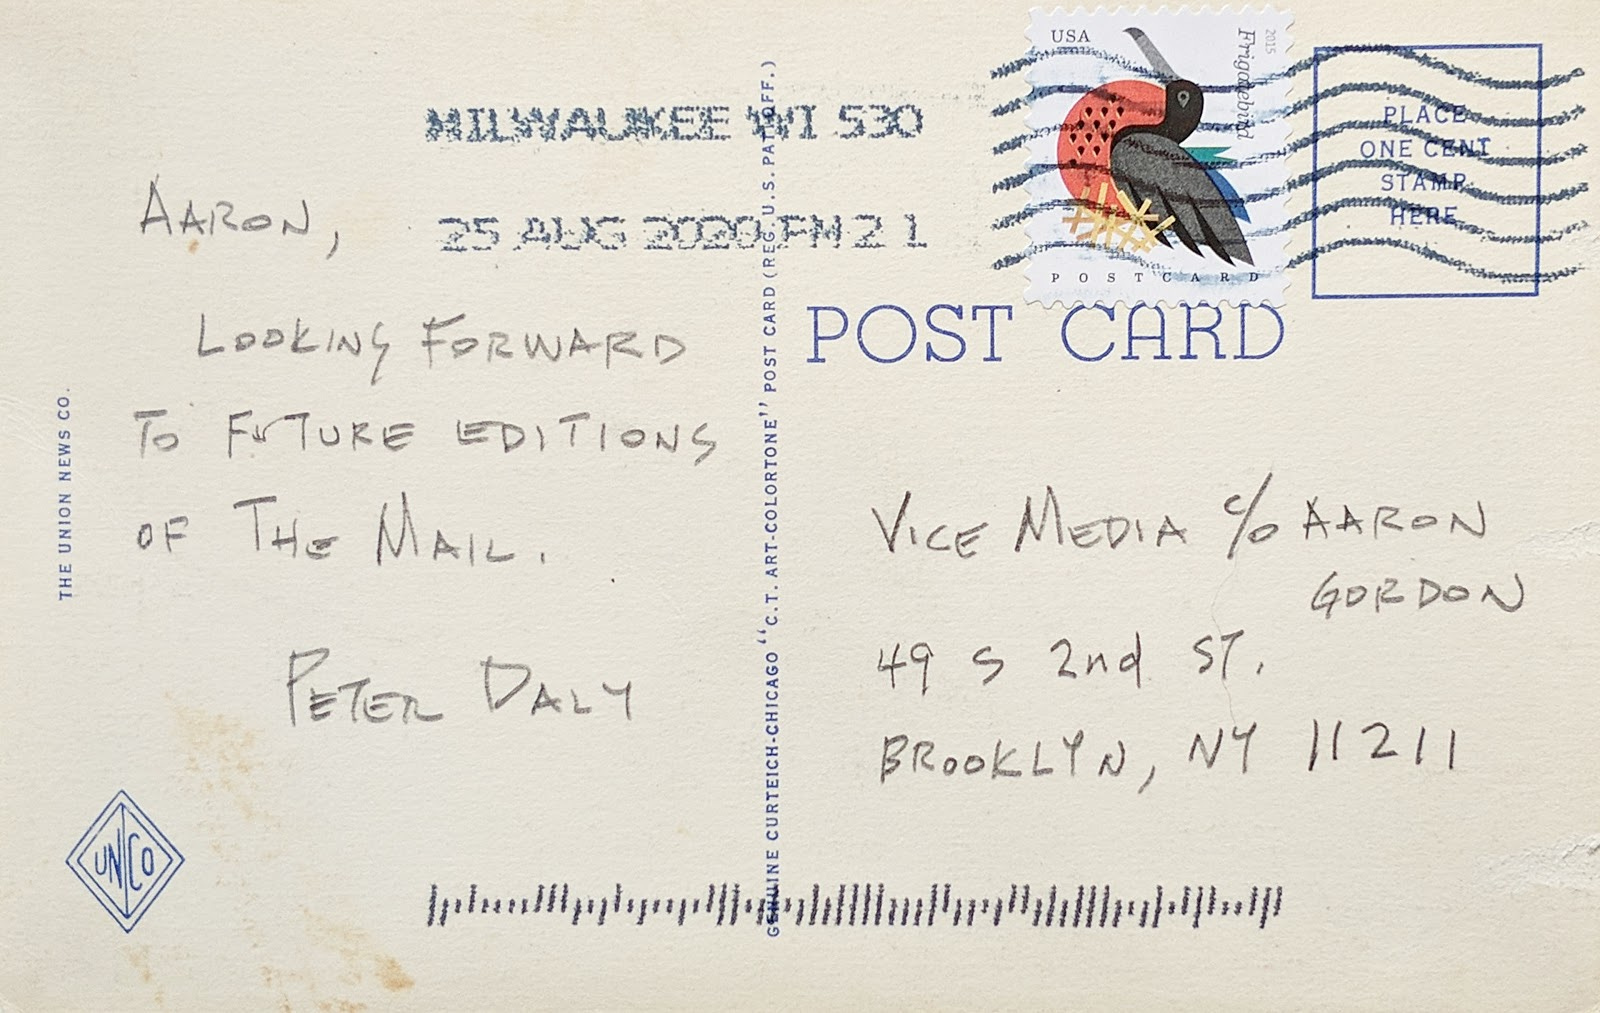 MILWAUKEE WI 530
25 AUG 2020 PM 2 L
USA
Frigatebird
2015
POSTCARD
PLACE
ONE CENT
STAMP
HERE
POST CARD
AARON,
LOOKING FORWARD
TO FUTURE EDITIONS
OF THE MAIL.
PETER DALY
THE UNION NEWS CO.
UNCO
GENUINE CURTEICH-CHICAGO "C.T. ART-COLORTONE" POST CARD (REG. U.S. PAT. OFF.)
VICE MEDIA c/o AARON
GORDON
49 S 2nd ST.
BROOKLYN, NY 11211